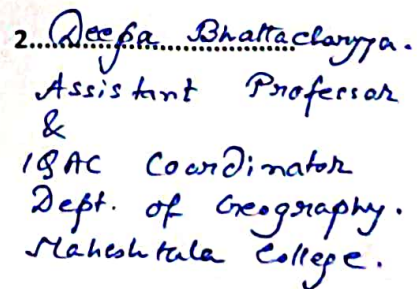 2. Deepa Bhattacharyya.
Assistant Professor
&
IQAC Coordinator
Dept. of Geography.
Maheshtala College.